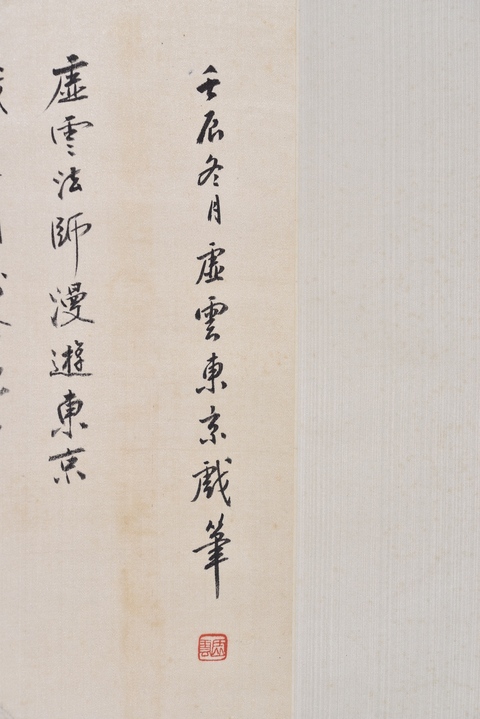 壬辰冬月虛雲東京戲筆
虛雲
虛雲法師漫遊東京